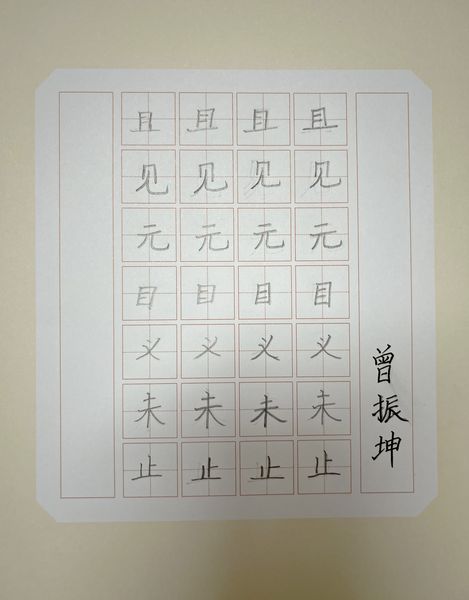 且且且且
见见见见
元元元元
目目目目
义义义义
未未未未
止止止止
曾振坤